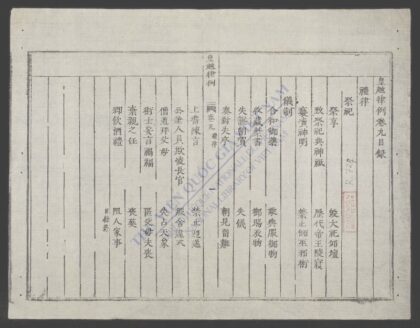 皇越律例卷九目錄
禮律
祭祀
祭享 毀大祀郊壇
致祭祀典神祇 歷代帝王陵寢
褻瀆神明 禁止師巫邪術
儀制
合和御藥 乘輿服御物
收藏禁書 御賜衣物
失誤朝賀 失儀
奏對失序 朝見留難
上書陳言
公差人員欺陵長官 服舍違式
僧道拜父母 失占天象
術士妄言禍福 匿父母夫喪
棄親之任 喪葬
鄉飲酒禮
皇越律例
卷九
THƯ VIỆN QUỐC GIA VIỆT NAM